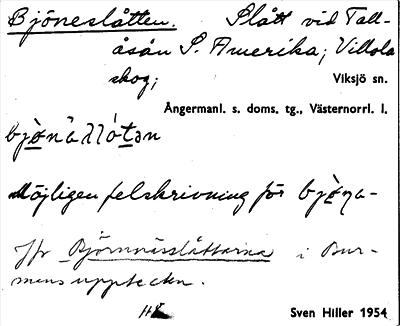 Bjöneslåtten. Slått vid Tall-
åsån S. Amerika; Villola
skog; Viksjö sn.
Ångermanl. s. doms. tg., Västernorrl. l.
Möjligen felskrivning för
Jfr Björnnässlåttarna i Bur-
mans uppteckn.
Sven Hiller 1954